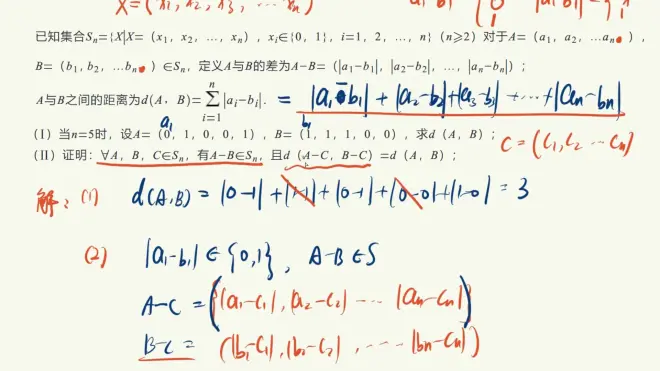 X=(x₁, x₂, x₃, … xₙ)
已知集合Sₙ={X|X=(x₁,x₂,…,xₙ),xᵢ∈{0,1},i=1,2,…,n}(n≥2)对于A=(a₁,a₂,…aₙ),
B=(b₁,b₂,…bₙ)∈Sₙ,定义A与B的差为A−B=(|a₁−b₁|,|a₂−b₂|,…,|aₙ−bₙ|);
A与B之间的距离为d(A,B)=∑ⁿᵢ₌₁|aᵢ−bᵢ|. = |a₁−b₁|+|a₂−b₂|+|a₃−b₃|+⋯+|aₙ−bₙ|
a₁ b₁
(Ⅰ)当n=5时,设A=(0,1,0,0,1),B=(1,1,1,0,0),求d(A,B); C=(c₁,c₂ ⋯ cₙ)
(Ⅱ)证明:∀A,B,C∈Sₙ,有A−B∈Sₙ,且d(A−C,B−C)=d(A,B);
解:(1) d(A,B)=|0−1|+|1−1|+|0−1|+|0−0|+|1−0|=3
(2) |a₁−b₁|∈{0,1}, A−B∈S
A−C=(|a₁−c₁|,|a₂−c₂|⋯|aₙ−cₙ|)
B−C=(|b₁−c₁|,|b₂−c₂|,⋯|bₙ−cₙ|)